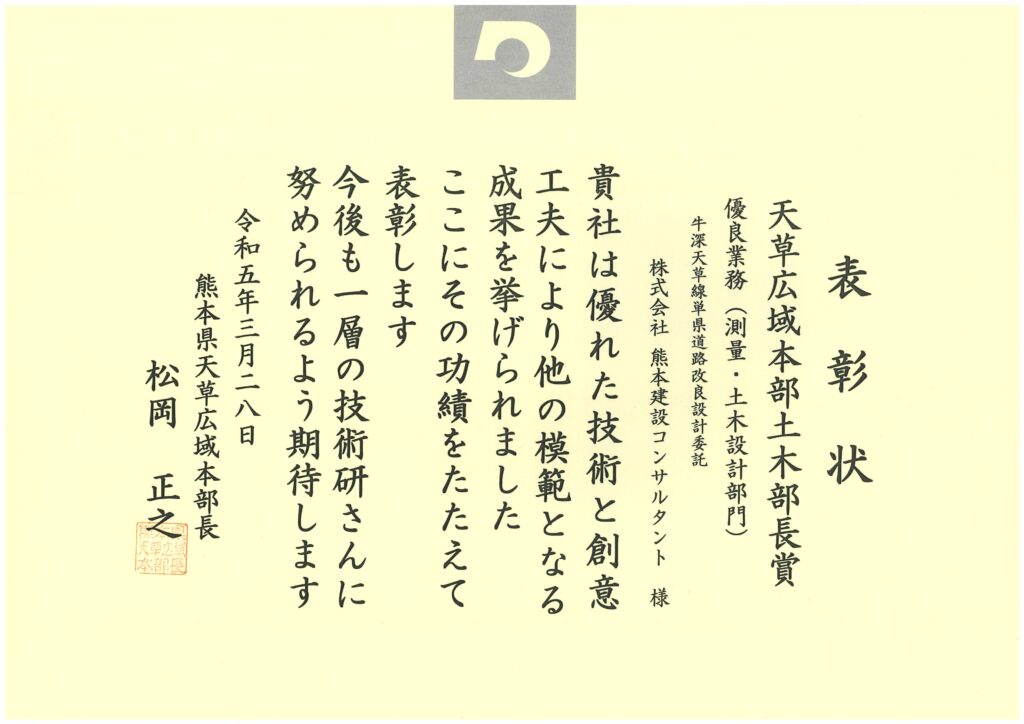 表彰状
天草広域本部土木部長賞
優良業務（測量・土木設計部門）
牛深天草線単県道路改良設計委託
株式会社 熊本建設コンサルタント 様
貴社は優れた技術と創意
工夫により他の模範となる
成果を挙げられました
ここにその功績をたたえて
表彰します
今後も一層の技術研さんに
努められるよう期待します
令和五年三月二八日
熊本県天草広域本部長
松岡 正之